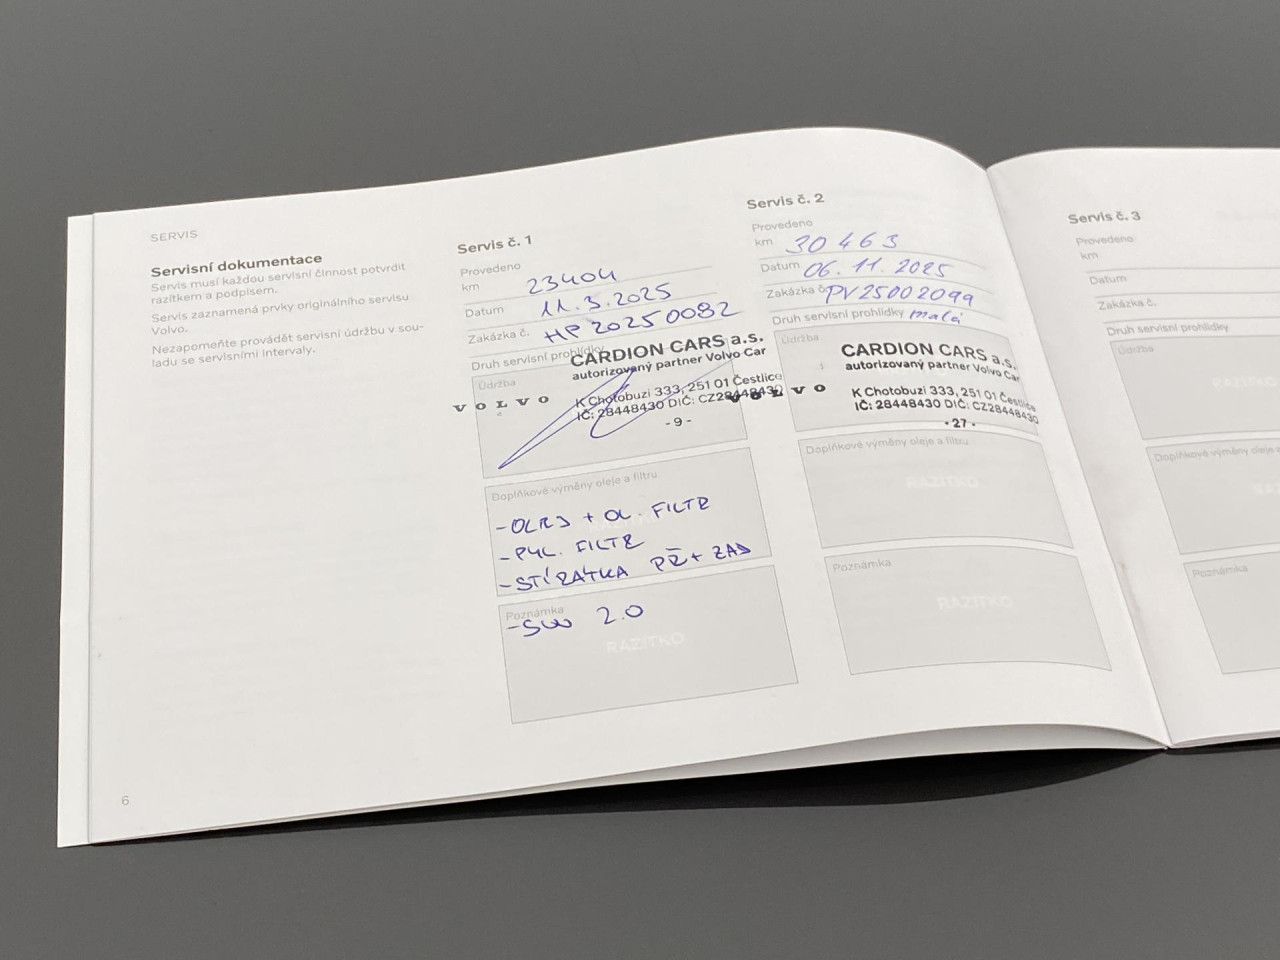 SERVIS
Servisní dokumentace
Servis musí každou servisní činnost potvrdit
razítkem a podpisem.
Servis zaznamená prvky originálního servisu
Volvo.
Nezapomeňte provádět servisní údržbu v sou-
ladu se servisními intervaly.
6
Servis č. 1
Provedeno
km 23404
Datum 11.3.2025
Zakázka č. HP20250082
Druh servisní prohlídky
Údržba
CARDION CARS a.s.
autorizovaný partner Volvo Car
VOLVO
K Chotobuzi 333, 251 01 Čestlice
IČ: 28448430 DIČ: CZ28448430
- 9 -
Doplňkové výměny oleje a filtru
- OLEJ + OL. FILTR
- PYL. FILTR
- STÍRÁTKA PŘ + ZAD
Poznámka
- SW 2.0
RAZÍTKO
Servis č. 2
Provedeno
km 30463
Datum 06.11.2025
Zakázka č. PV25002099
Druh servisní prohlídky malá
Údržba
CARDION CARS a.s.
autorizovaný partner Volvo Car
VOLVO
K Chotobuzi 333, 251 01 Čestlice
IČ: 28448430 DIČ: CZ28448430
- 27 -
Doplňkové výměny oleje a filtru
RAZÍTKO
Poznámka
RAZÍTKO
Servis č. 3
Provedeno
km
Datum
Zakázka č.
Druh servisní prohlídky
Údržba
Doplňkové výměny oleje a
Poznámka